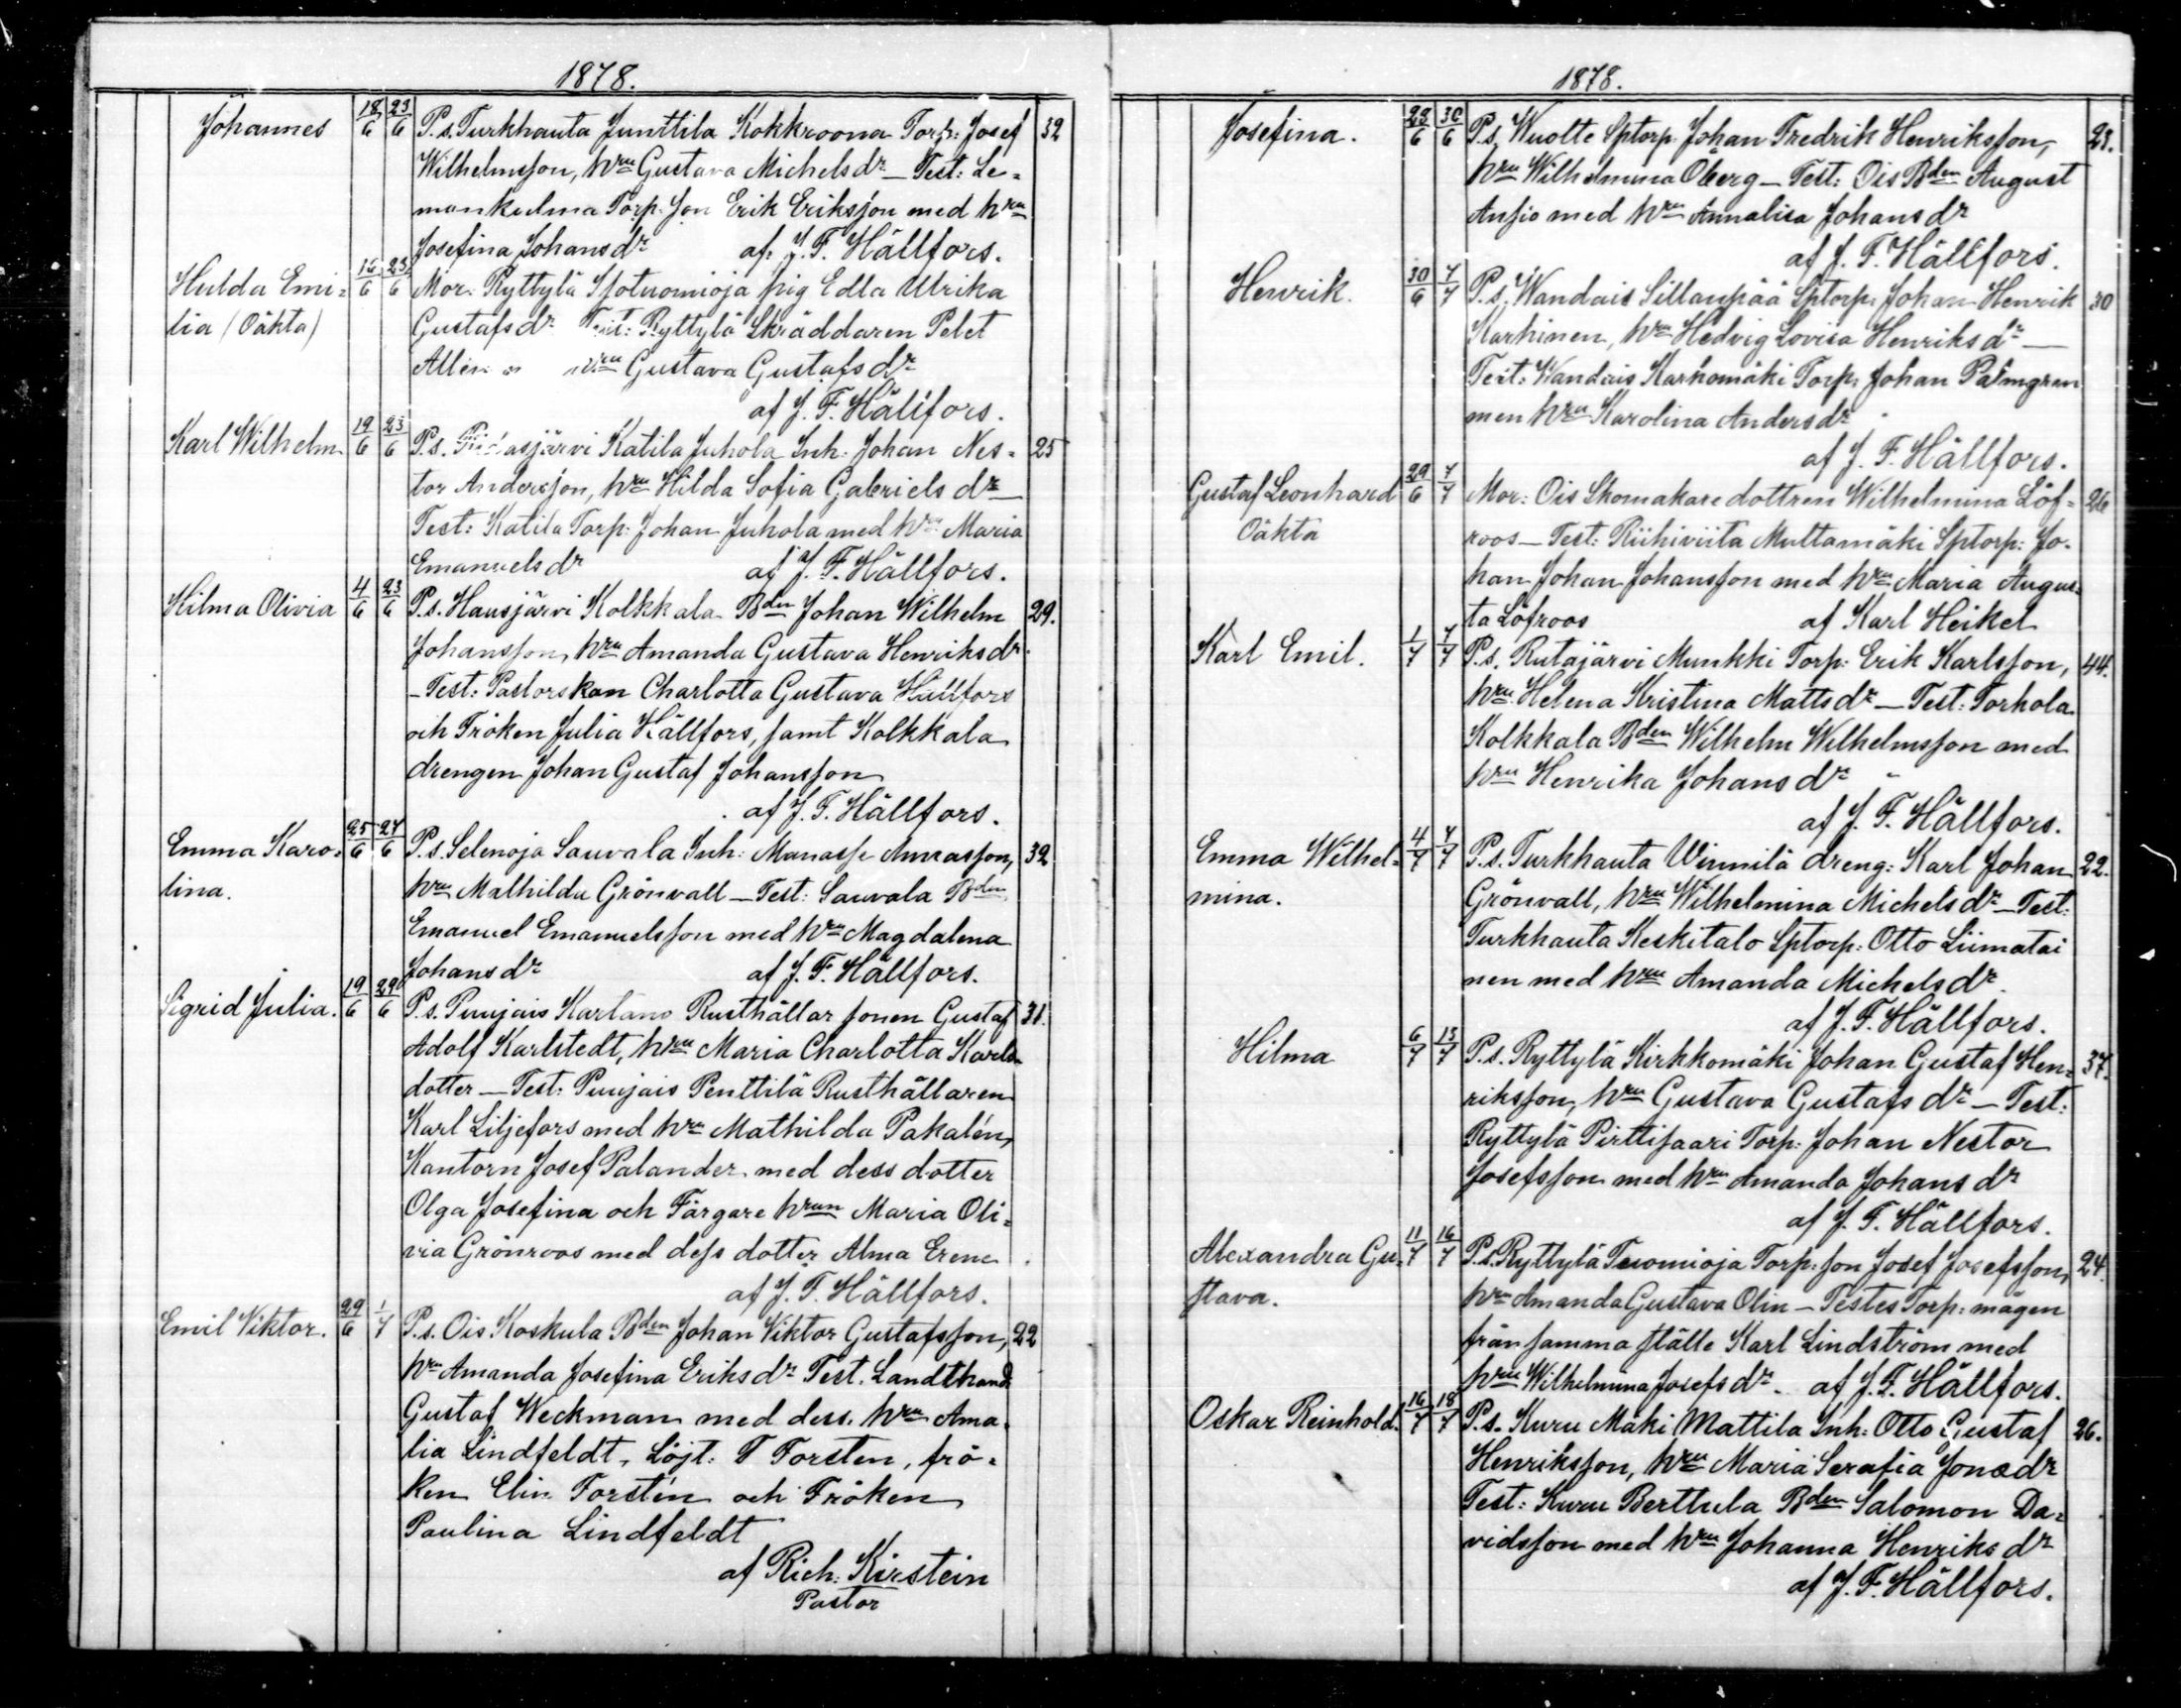 1878.
Johannes 18/6 23/6 P.s. Turkhauta Junttila Kokkroona Torp: Josef 32
Wilhelmsson, hru Gustava Michelsdr – Test: Le-
monkulma Torp. son Erik Eriksson med hru
Josefina Johansdr af J. F. Hällfors.
Hulda Emi- 16/6 23/6 Mor. Ryttylä pig Edla Ulrika
lia (Oäkta) Gustafsdr Test: Ryttylä Skräddaren
Gustava Gustafsdr
af J. F. Hällfors.
Karl Wilhelm 19/6 23/6 P.s. Katila Juhola Inh. Johan Nes- 25
tor Andersson, hru Hilda Sofia Gabrielsdr –
Test: Katila Torp: Johan Juhola med hru Maria
Emanuelsdr af J. F. Hällfors.
Hilma Olivia 4/6 23/6 P.s. Hausjärvi Kolkkala Bdn Johan Wilhelm 29.
Johansson, hru Amanda Gustava Henriksdr.
– Test: Pastorskan Charlotta Gustava Hällfors
och Fröken Julia Hällfors, samt Kolkkala
drengen Johan Gustaf Johansson
af J. F. Hällfors.
Emma Karo- 25/6 27/6 P.s. Selenoja Sauvala Inh: Manasse 32
lina. hru Mathilda Grönvall – Test: Sauvala Bden
Emanuel Emanuelsson med hru Magdalena
Johansdr af J. F. Hällfors.
Sigrid Julia. 19/6 29/6 P.s. Puujais Karlano Rusthållar sonen Gustaf 31.
Adolf Karlstedt, hru Maria Charlotta Karls-
dotter – Test: Puujais Penttilä Rusthållaren
Karl Liljefors med hru Mathilda Pakalén,
Kantorn Josef Palander med dess dotter
Olga Josefina och Färgare hrun Maria Oli-
via Grönroos med dess dotter Alma Erene
af J. F. Hällfors.
Emil Viktor. 29/6 1/7 P.s. Ois Koskula Bden Johan Viktor Gustafsson, 22
hru Amanda Josefina Eriksdr Test. Landthand
Gustaf Weckman med dess hru Ama-
lia Lindfeldt, Löjt: T Forsten, frö-
ken Elin Forstén och Fröken
Paulina Lindfeldt
af Rich: Kirstein
Pastor
1878.
Josefina. 22/6 30/6 P.s. Wuolte Sptorp Johan Fredrik Henriksson, 23.
hru Wilhelmina Öberg – Test: Ois Bden August
Ansio med hru Annalisa Johansdr
af J. F. Hällfors.
Henrik. 30/6 7/7 P.s. Wandais Sillanpää Sptorp. Johan Henrik 30
Karhinen, hru Hedvig Lovisa Henriksdr –
Test: Wandais Karhomäki Torp. Johan Palmgren
men hru Karolina Andersdr
af J. F. Hällfors.
Gustaf Leonhard 29/6 7/7 Mor: Ois Skomakare dottren Wilhelmina Löf- 26
Oäkta roos – Test: Riihiviita Multamäki Sptorp: Jo-
han Johan Johansson med hru Maria Augus-
ta Löfroos af Karl Heikel
Karl Emil. 1/7 7/7 P.s. Rutajärvi Munkki Torp: Erik Karlsson, 44.
hru Helena Kristina Mattsdr – Test: Torhola
Kolkkala Bden Wilhelm Wilhelmsson med
hru Henrika Johansdr
af J. F. Hällfors.
Emma Wilhel- 4/7 7/7 P.s. Turkhauta Winnilä dreng: Karl Johan 22.
mina. Grönvall, hru Wilhelmina Michelsdr – Test:
Turkhauta Keskitalo Sptorp: Otto Liimatai
nen med hru Amanda Michelsdr.
af J. F. Hällfors.
Hilma 6/7 13/7 P.s. Ryttylä Kirkkomäki Johan Gustaf Hen- 37.
riksson, hru Gustava Gustafsdr – Test:
Ryttylä Pirttisaari Torp: Johan Nestor
Josefsson med hru Amanda Johansdr
af J. F. Hällfors.
Alexandra Gu- 11/7 16/7 P.s. Ryttylä Torp: son Josef Josefsson, 24.
stava. hru Amanda Gustava Olin – Testes Torp: mågen
från samma ställe Karl Lindström med
hru Wilhelmina Josefsdr. af J. F. Hällfors.
Oskar Reinhold. 16/7 18/7 P.s. Kuru Mäki Mattila Inh: Otto Gustaf 26.
Henriksson, hru Maria Serafia Jonædr
Test: Kuru Berttula Bden Salomon Da-
vidsson med hru Johanna Henriksdr
af J. F. Hällfors.